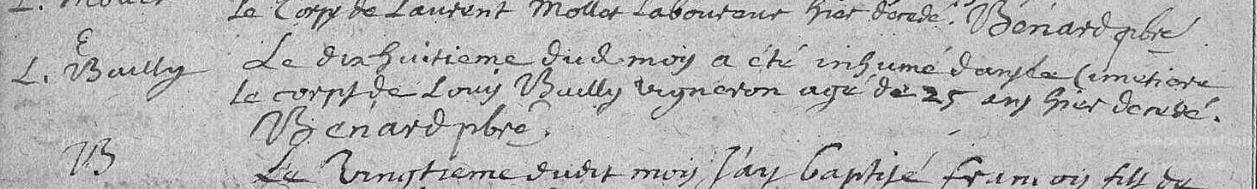 le Corps de Laurent Mollet Laboureur hier decedé. Benard pbre
E
L. Bailly
Le dix huitieme dud mois a été inhumé dans le Cimetiere
le corps de Louis Bailly vigneron agé de 25 ans hier decedé.
Benard pbre.
B
Le Vingtieme dudit mois J'ay baptisé francois fils de